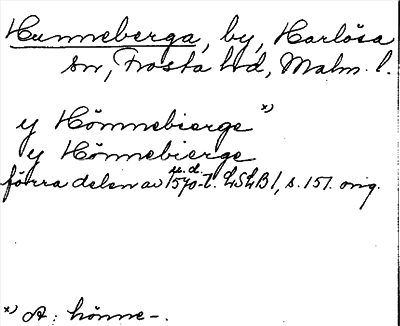 Hunneberga, by, Harlösa
sn, Frosta hd, Malm. l.
y Hömnebierge x)
y Hönnebierge
förra delen av 1570-t. LSLB 1, s. 151. orig.
x) A: hönne-.